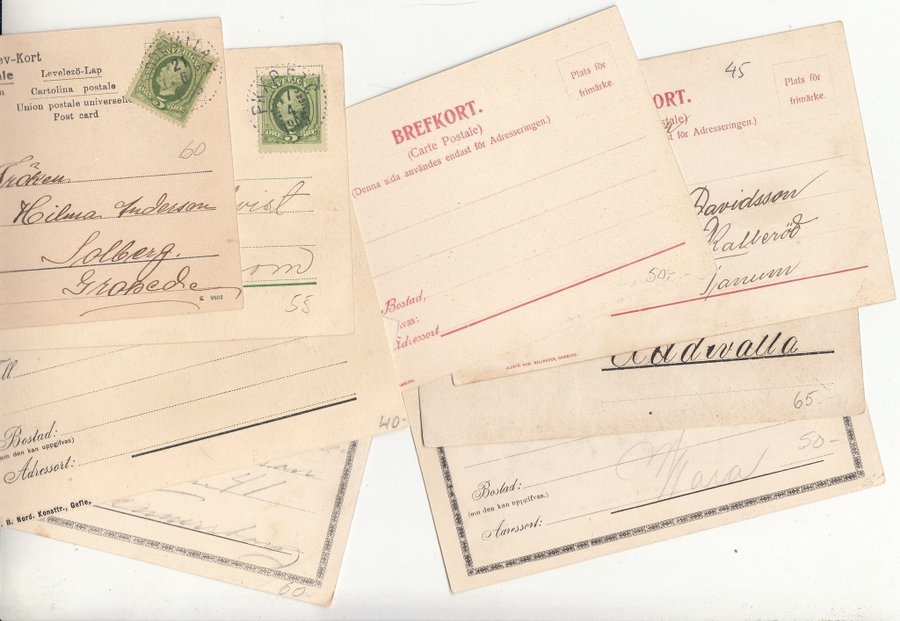 ev-Kort
ale
Levelező-Lap
Cartolina postale
Union postale universelle
Post card
21
6
60
Hilma Anderson
Solberg.
K 9502
55
BREFKORT.
(Carte Postale)
(Denna sida användes endast för Adresseringen.)
Plats för
frimärke.
Bostad,
ifvas:
Adressort
50:-
45
ORT.
stale)
st för Adresseringen.)
Plats för
frimärke.
Davidsson
Kalleröd
Tanum
Uddevalla
65:-
Bostad:
(om den kan uppgifvas)
Adressort:
40:-
B. Nord. Konsttr., Gefle,
41
60:-
50:-
Bostad:
(om den kan uppgifvas.)
Adressort: